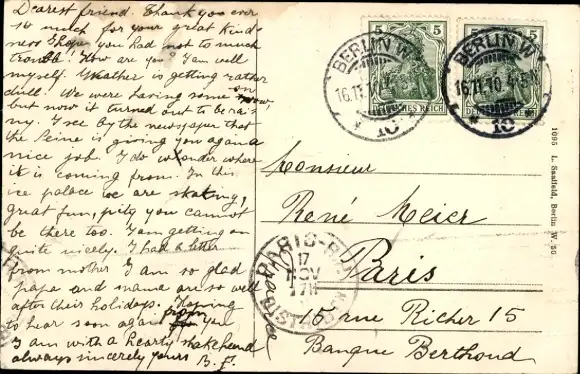 Dearest friend. Thank you ever
so much for your great kind-
ness I hope you had not to much
trouble! How are you? I am well
myself. Weather is getting rather
dull. We were having some snow,
but now it turned out to be rai-
ny. I see by the newspaper that
the Seine is giving you again a
nice job. I do wonder where
it is coming from. In this
ice palace we are skating,
great fun, pity you cannot
be there too. I am getting on
quite nicely. I had a letter
from mother I am so glad
papa and mama are so well
after their holidays. Hoping
to hear soon again from you
I am with a hearty shakehand
always sincerely yours B. F.
5 5
5 5
BERLIN W
16.11.10
10
BERLIN W
16.11.10
10
DEUTSCHES REICH
DEUTSCHES REICH
Monsieur
René Meier
Paris
15 rue Richer 15
Banque Berthoud
France
PARIS
17
NOV
DISTRIBUTION
1095 L. Saalfeld, Berlin W. 50